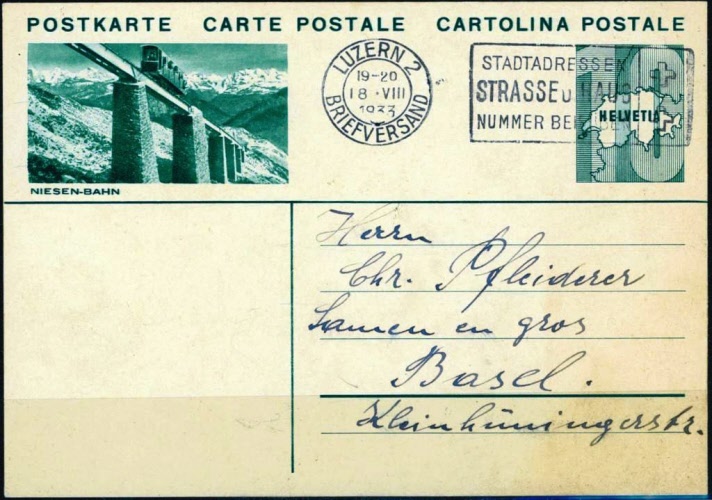 POSTKARTE CARTE POSTALE CARTOLINA POSTALE
NIESEN-BAHN
LUZERN 2
19-20
18 VIII
1933
BRIEFVERSAND
STADTADRESSEN
STRASSE U HAUS
NUMMER BEI
10
HELVETIA
Herrn
Chr. Pfleiderer
Samen en gros
Basel.
Kleinhüningerstr.